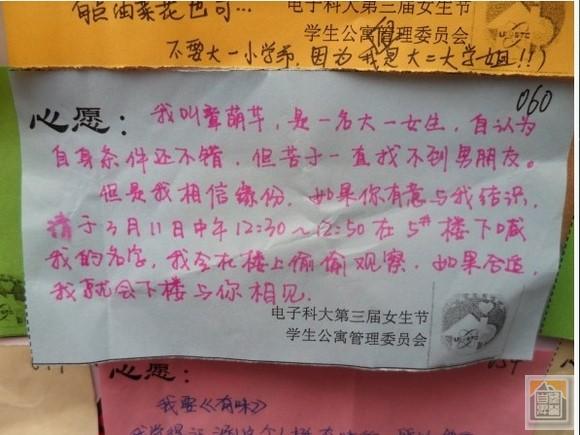 有西菜花也可…
电子科大第三届女生节
学生公寓管理委员会
不要大一小学弟,因为我是大二大学姐!!)
060
心愿:
我叫章萌芊,是一名大一女生,自认为
自身条件还不错,但苦于一直找不到男朋友。
但是我相信缘份,如果你有意与我结识,
请于3月11日中午12:30~12:50在5#楼下喊
我的名字,我会在楼上偷偷观察,如果合适,
我就会下楼与你相见.
电子科大第三届女生节
学生公寓管理委员会
心愿:
我要《有味》